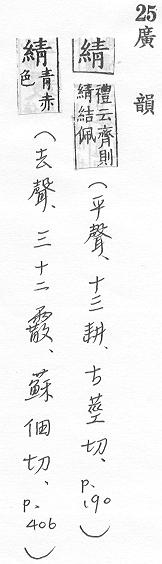 25廣韻
綪 禮云齊則綪結佩（平聲、十三耕、古莖切、p.190）
綪 青赤色（去聲、三十二霰、蘇佃切、p.406）